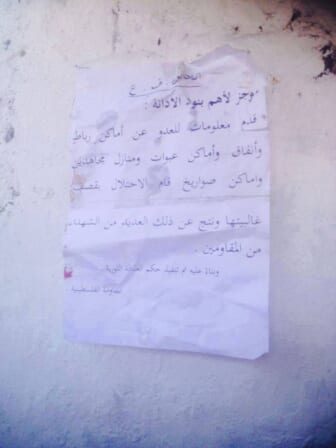 ف . ع
موجز لأهم بنود الادانة :
قدم معلومات للعدو عن أماكن رباط
وأنفاق وأماكن عبوات ومنازل مجاهدين
واماكن صواريخ قام الاحتلال بقصف
غالبيتها ونتج عن ذلك العديد من الشهداء
من المقاومين .
وبناء عليه تم تنفيذ حكم العدالة الثورية
المقاومة الفلسطينية